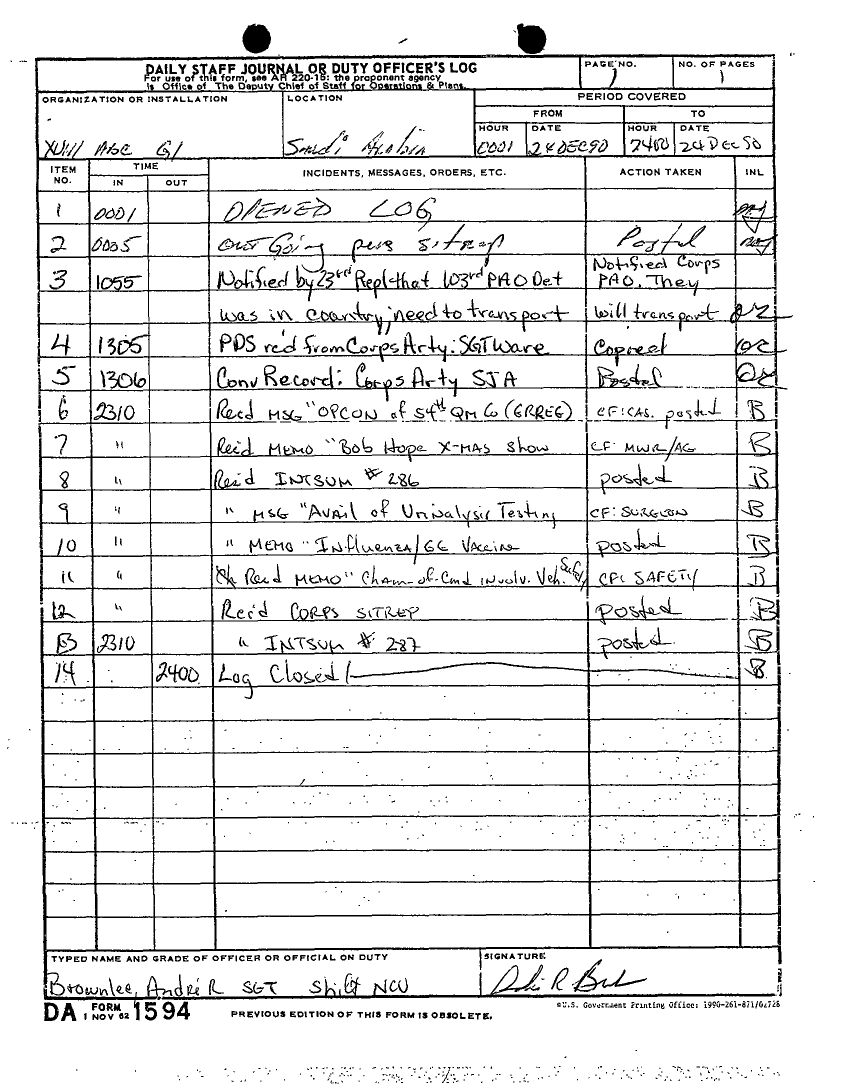 DAILY STAFF JOURNAL OR DUTY OFFICER'S LOG
For use of this form, see AR 220-15; the proponent agency
is Office of The Deputy Chief of Staff for Operations & Plans.
PAGE NO.
1
NO. OF PAGES
1
ORGANIZATION OR INSTALLATION
XVIII ABC G1
LOCATION
Saudi Arabia
PERIOD COVERED
FROM
TO
HOUR DATE HOUR DATE
0001 24DEC90 2400 24DEC90
ITEM NO. TIME IN OUT INCIDENTS, MESSAGES, ORDERS, ETC. ACTION TAKEN INL
1 0001 OPENED LOG
2 0035 Out Going pers sitrep Postal
3 1055 Notified by 23rd Repl that 103rd PAO Det Notified Corps PAO. They
was in country, need to transport will transport
4 1305 PDS rc'd from Corps Arty: SGT Ware Copied
5 1306 Conv Record: Corps Arty SJA Postal
6 2310 Recd MSG "OPCON of 54th QM Co (GRREG) CF: CAS. posted B
7 " Rec'd MEMO "Bob Hope X-MAS Show CF: MWR/AG B
8 " Rec'd INTSUM # 286 posted B
9 " " MSG "Avail of Urinalysis Testing CF: SURGEON B
10 " " MEMO "Influenza/GG Vaccine posted B
11 " Recd MEMO "Chain-of-Cmd involv. Veh. Safety CF: SAFETY B
12 " Rec'd CORPS SITREP posted B
13 2310 " INTSUM # 287 posted B
14 2400 Log Closed B
TYPED NAME AND GRADE OF OFFICER OR OFFICIAL ON DUTY
Brownlee, André R SGT Shift NCO
SIGNATURE
DA FORM 1594
1 NOV 62
PREVIOUS EDITION OF THIS FORM IS OBSOLETE.
*U.S. Government Printing Office: 1990-261-871/